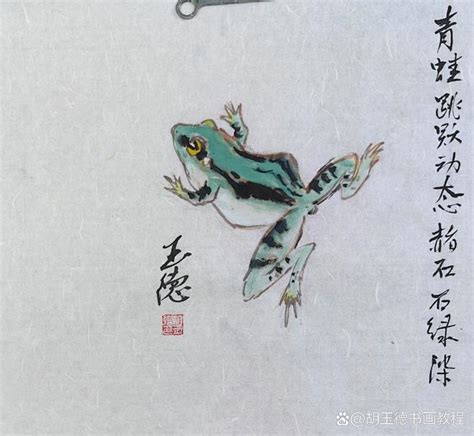 青蛙跳跃动态赭石石绿染
玉德
胡玉德书画教程